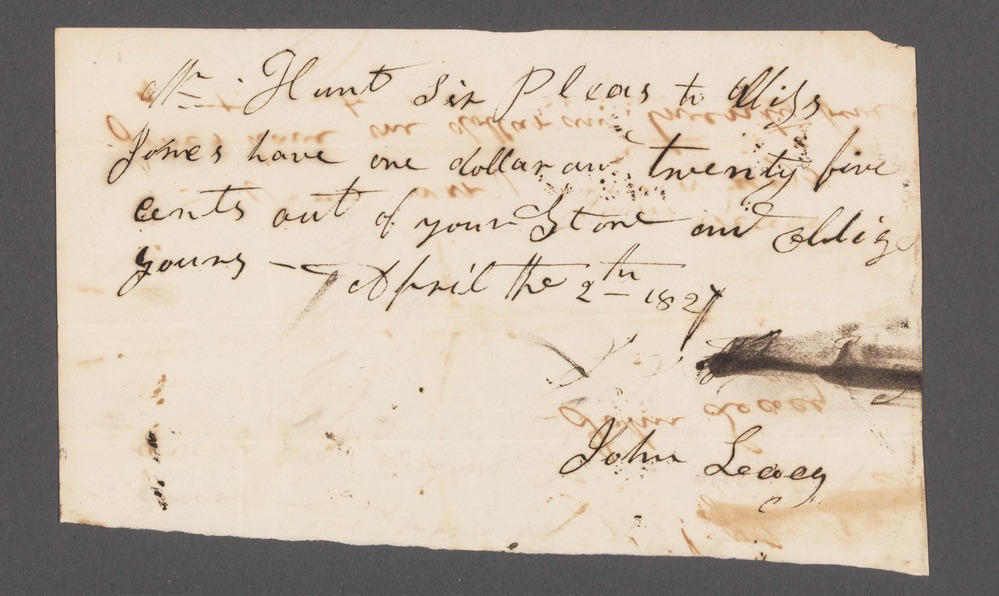 Mr. Hunt Sir Pleas to Miss
Jones have one dollar an twenty five
cents out of your Store and oblige
yours – April the 2th 1827
John Leacy